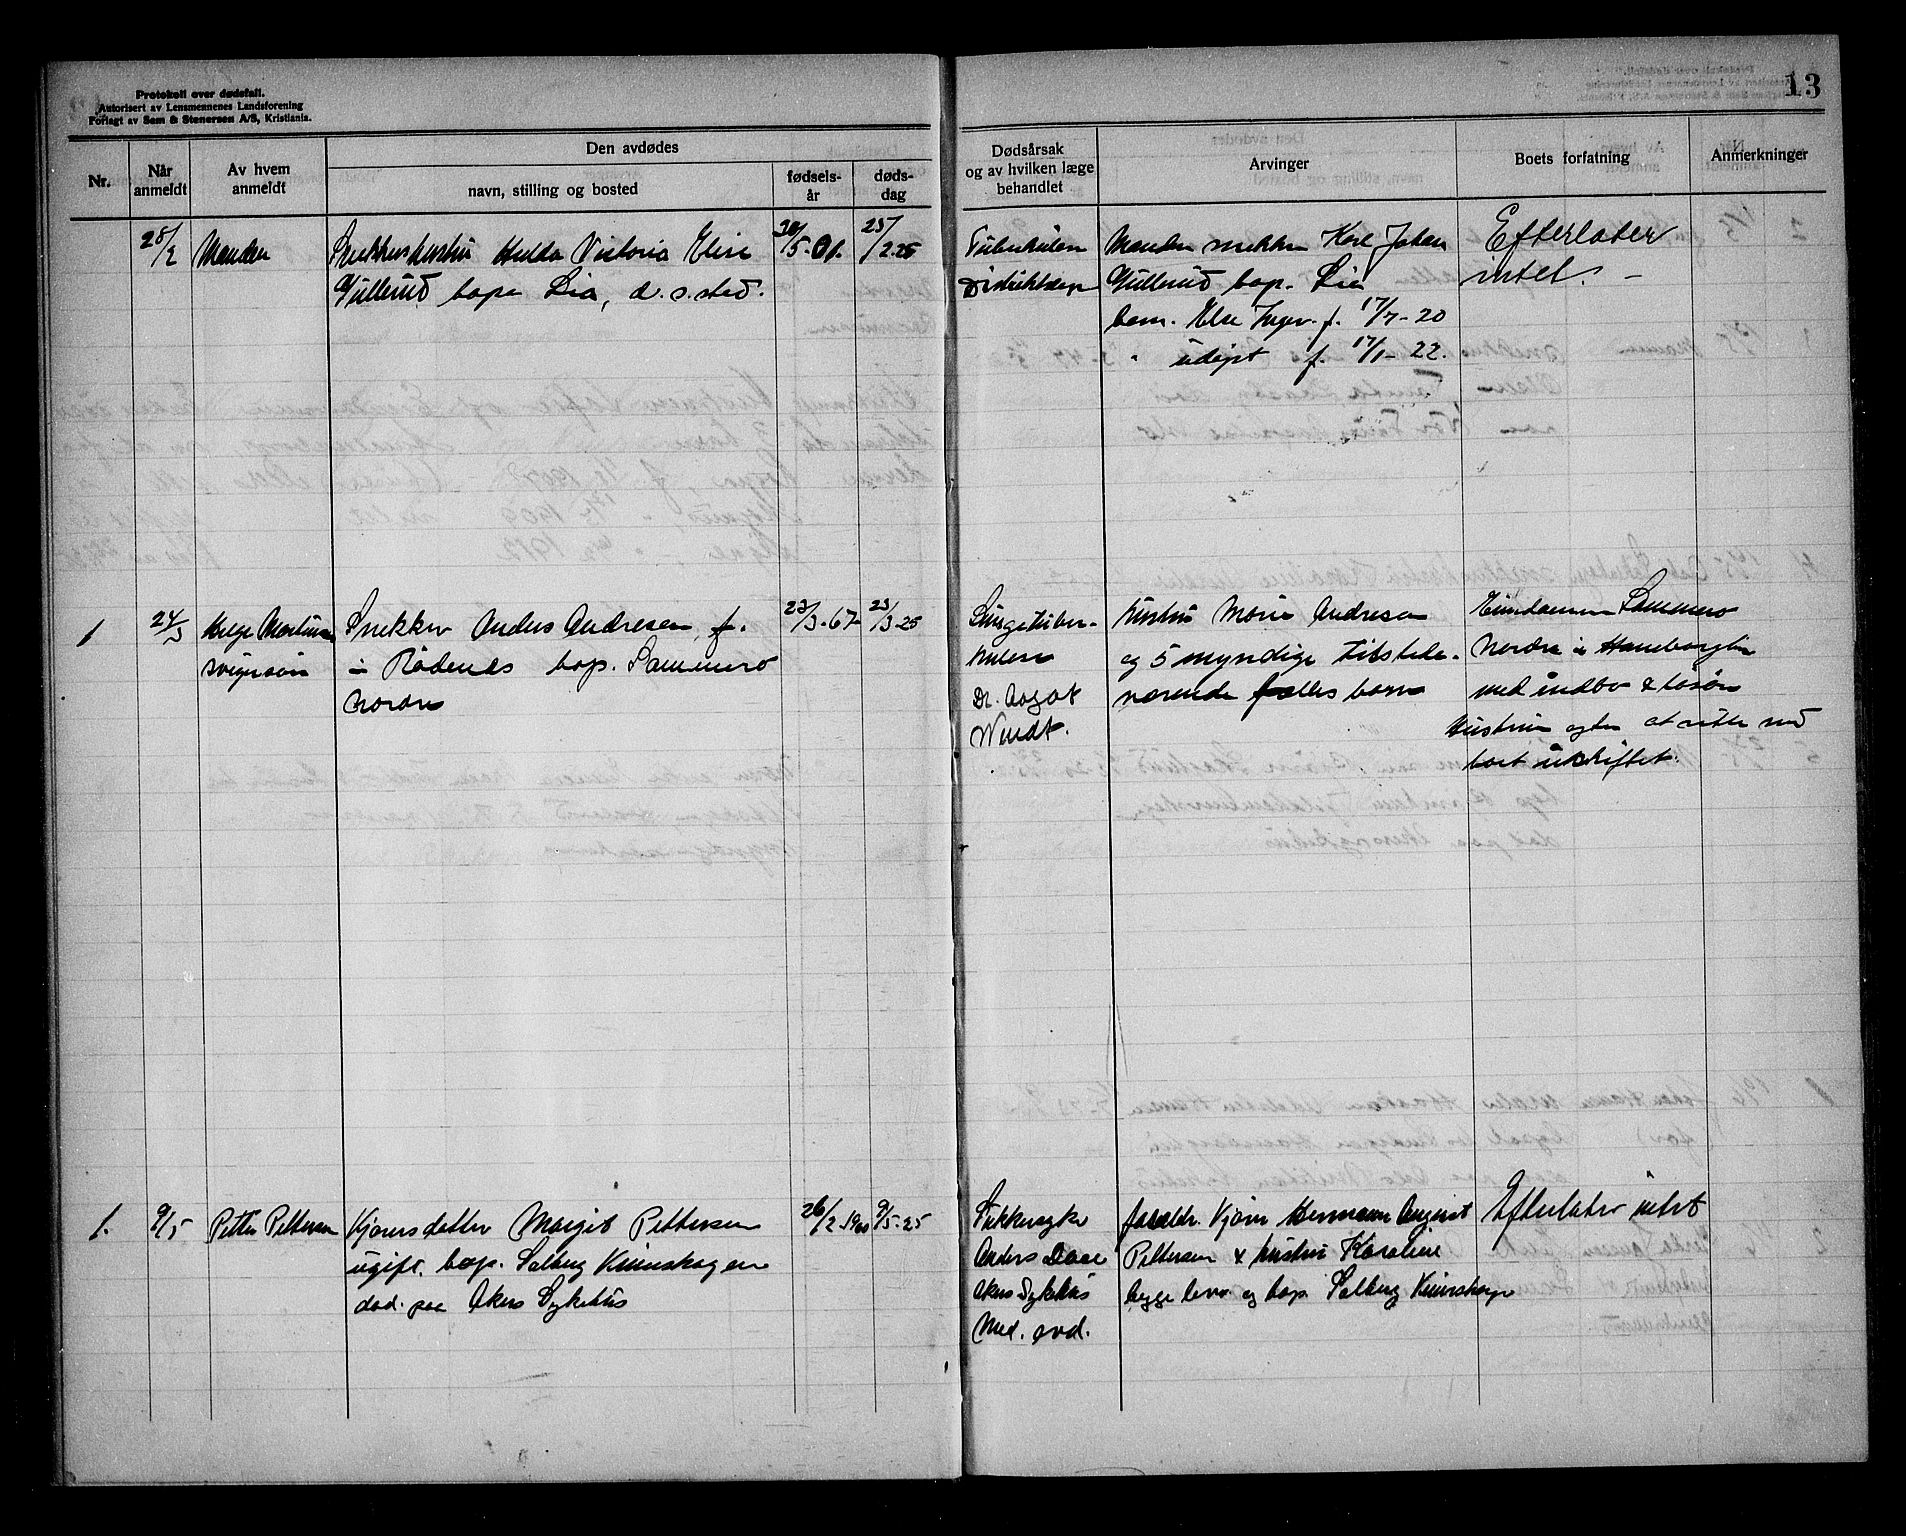 Protokoll over dødsfall.
Autorisert av Lensmennenes Landsforening
Forlagt av Sem & Stenersen A/S, Kristiania.
13
Nr.
Når anmeldt
Av hvem anmeldt
Den avdødes
navn, stilling og bosted
fødsels-år
døds-dag
Dødsårsak og av hvilken læge behandlet
Arvinger
Boets forfatning
Anmerkninger
28/2 Manden
Snekkerhustru Hulda Victoria Elise
Gullerud bope Lia, d. s. sted.
5-01. 25/2-25
Tuberkulen
Distriktslæge
Manden snekker Karl Johan
Gullerud bop. Lia
barn. Else Inger f. 17/7-20
" udøpt f. 17/1-22.
Efterlater
intet. —
1 24/3 Helge Martinsen
Snekker Anders Andresen, f.
i Rødenes bop. Sammerø
nordre
23/3-67 23/3-25
Lungetuber-
kulose
Dr. Aagot
Wendt.
hustru Marie Andresen
og 5 myndige tilstede-
værende fælles barn
Eiendommen Sammerø
Nordre i Haneborgbu
med indbo & løsøre
Hustruen agter at sitte med
boet uskiftet.
1. 9/5 Petter Pettersen
Kjørersdatter Margit Pettersen
ugift. bop. Solberg Kvinskogen
død. paa Akers Sykehus
26/2-1900 9/5-25
Sukkersyke
Anders Daae
Akers Sykehus
Med. avd.
foreldr. Kjører Hermann August
Pettersen & hustru Karoline
begge lever og bop. Solberg
Efterlater intet